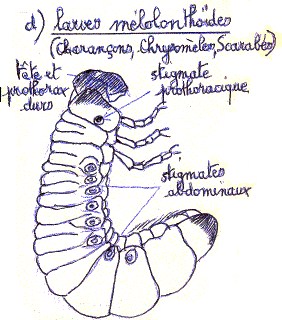 d) larves mélolonthoïdes
(Charançons, Chrysomèles, Scarabés)
tête et
prothorax
durs
stigmate
prothoracique
stigmates
abdominaux